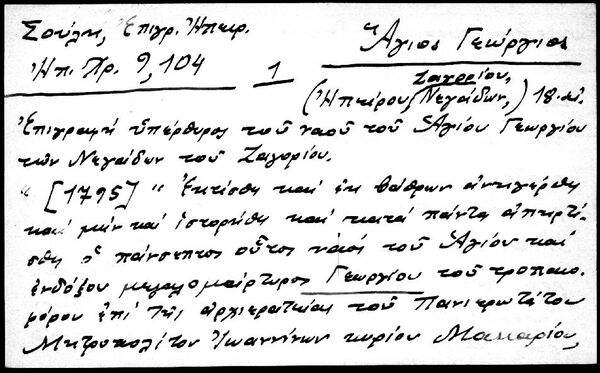 Σούλη, Ἐπιγρ. Ἠπειρ.
Ἅγιος Γεώργιος
Ἠπ. Χρ. 9, 104
1
Ζαγορίου,
(Ἠπείρου, Νεγάδων,) 18. αἰ.
Ἐπιγραφή ὑπέρθυρος τοῦ ναοῦ τοῦ Ἁγίου Γεωργίου
τῶν Νεγάδων τοῦ Ζαγορίου.
"[1795] "Ἐκτίσθη καί ἐκ βάθρων ἀνηγέρθη
καί μήν καί ἱστορήθη καί κατά πάντα ἀπηρτί-
σθη ὁ πάνσεπτος οὗτος ναός τοῦ Ἁγίου καί
ἐνδόξου μεγαλομάρτυρος Γεωργίου τοῦ τροπαιο-
φόρου ἐπί τῆς ἀρχιερατείας τοῦ Πανιερωτάτου
Μητροπολίτου Ἰωαννίνων κυρίου Μακαρίου,